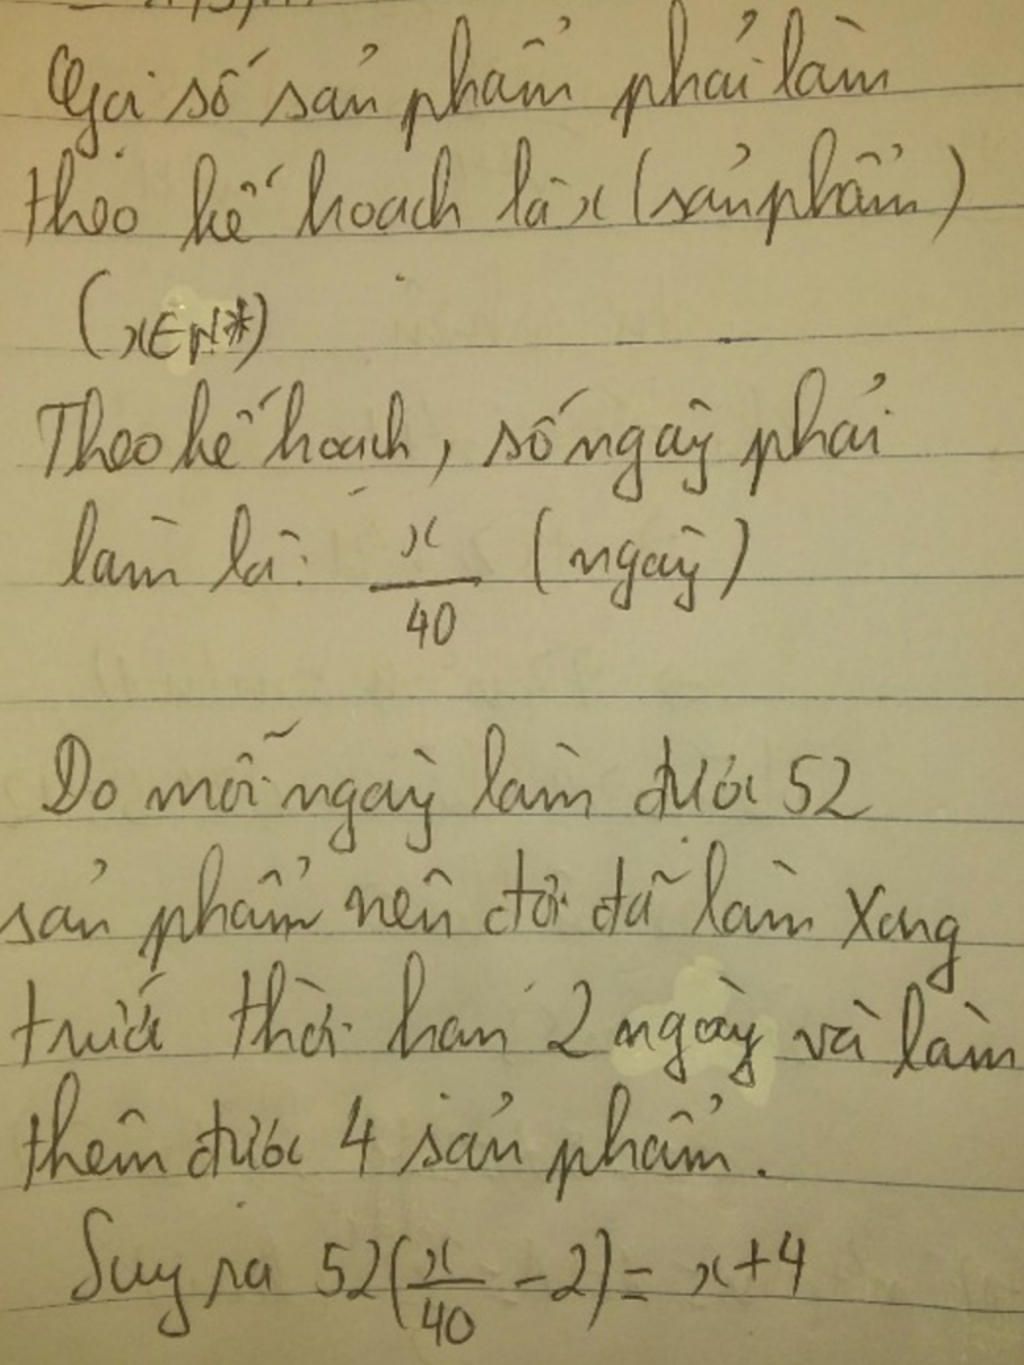 Gọi số sản phẩm phải làm
theo kế hoạch là x (sản phẩm)
(x∈N*)
Theo kế hoạch, số ngày phải
làm là: x/40 (ngày)
Do mỗi ngày làm được 52
sản phẩm nên đội đã làm xong
trước thời hạn 2 ngày và làm
thêm được 4 sản phẩm.
Suy ra 52(x/40 - 2) = x+4